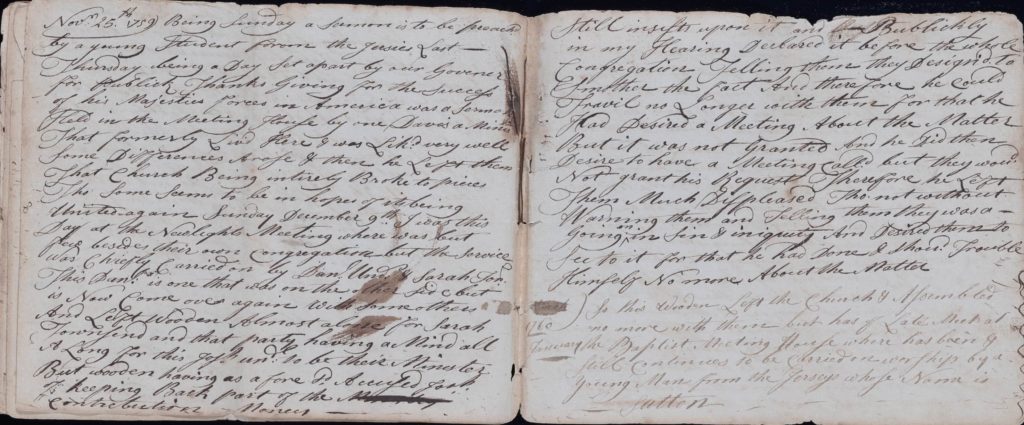 Novr. 25th 1759 Being Sunday a sermon is to be preach'd
by a young Student from the Jersies Last
Thursday being a Day Set apart by our Govener
for Publick Thanks Giving for the Success
of his Majesties forces in America was a Sermon
Held in the Meeting House by one Daves a Minister
That formerly Liv'd Here & was Lik'd very well
Some Differences Arose & then he Left them
That Church Being intirely Broke to pieces
Tho Some Seems to be in hopes of its being
United again Sunday December 9th I was this
Day at the Newlights Meeting where was but
few besides their own Congregation but the Service
was Chiefly Carried on by Danl. & Sarah
This Danl. is one that was on the Side but
is Now Come over again With Some others
And Left Wooden Almost alone for Sarah
Townsend and that party having a Mind all
A Long for this Josh to be their Minister
But wooden having as a fore Sd. Accused Josh
of keeping Back part of the
Contribution Moneys
Still insists upon it and Publickly
in my Hearing Declared it before the whole
Congregation Telling them they Design'd to
Smother the fact And therefore he could
Travil no Longer with them for that he
Had Desired a Meeting About the Matter
But it was not Granted And he Did then
Desire to have a Meeting Call'd but they would
Not grant his Request Therefore he Left
Them Much Displeased Tho not without
Warning them and Telling them they was a
Going in Sin & iniquity And Desired them to
See to it for that he had Done & should Trouble
Himself No more About the Matter
1760
January
So this Wooden Left the Church & Assembled
no more with them but has of Late Meet at
the Baptist Meeting House where has been &
still Continues to be Carried on worship by a
Young Man from the Jerseys whose Name is
Sutton